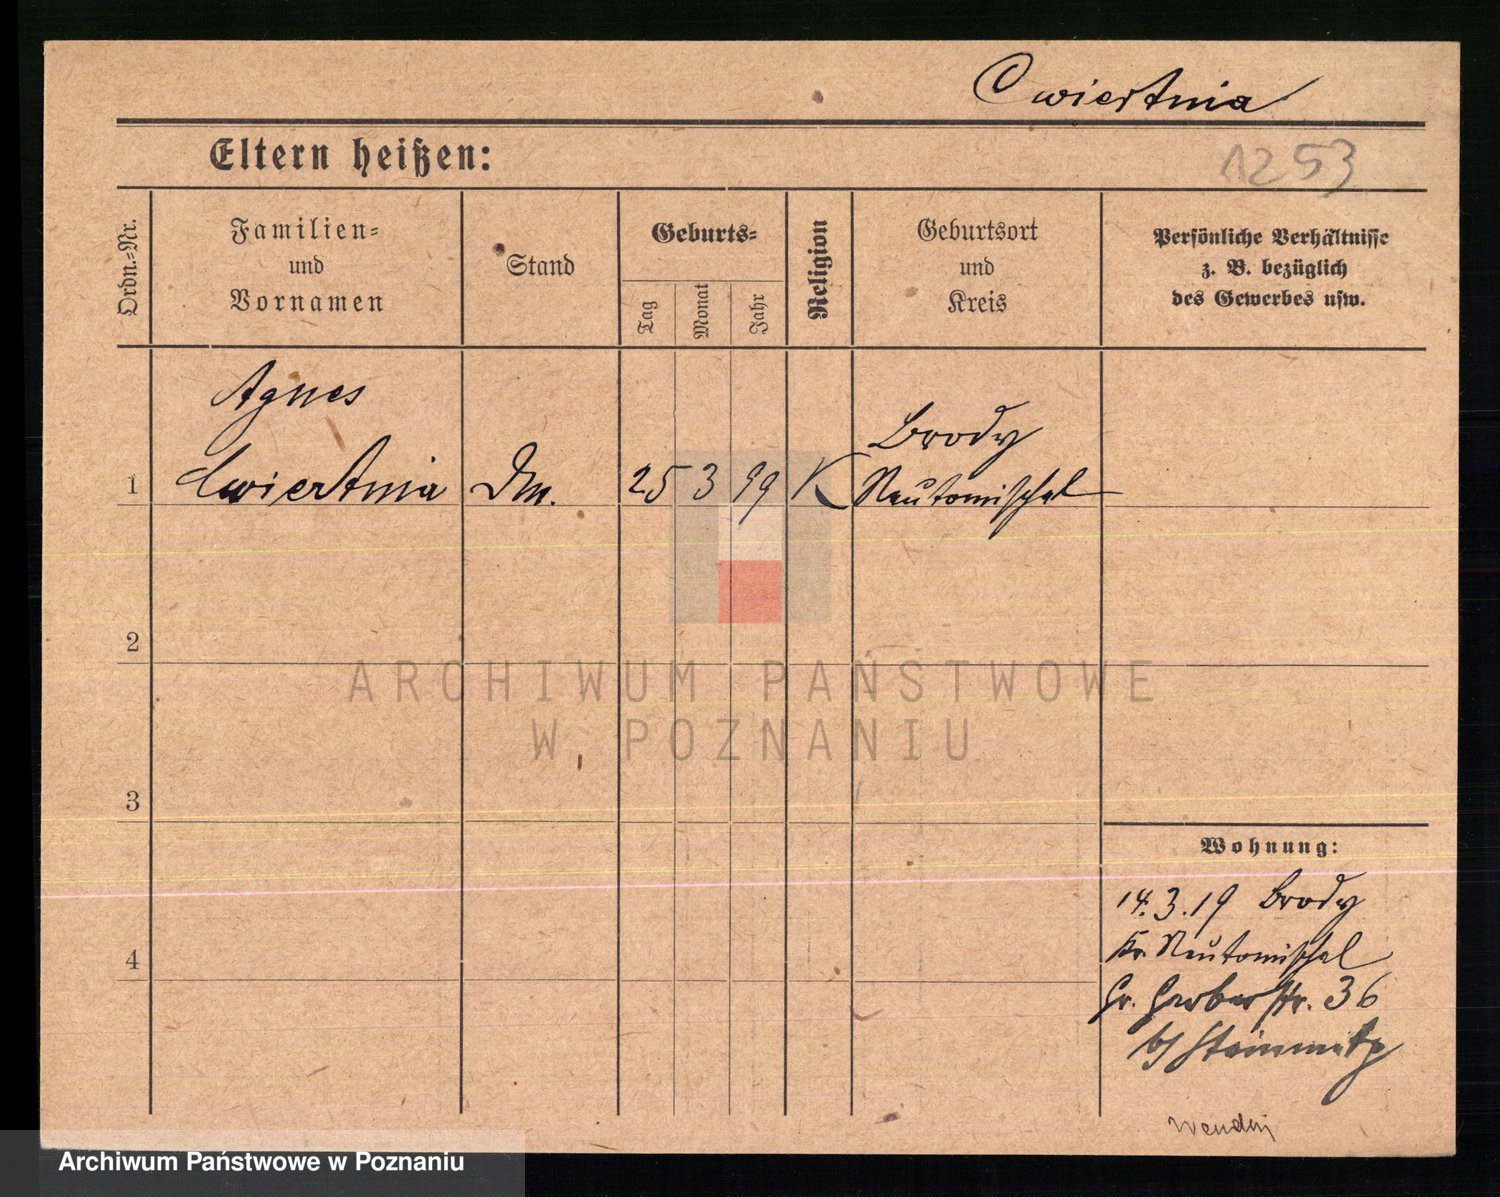 Cwiertnia
Eltern heißen:
1253
Ordn.-Nr.
Familien-
und
Vornamen
Stand
Geburts-
Tag
Monat
Jahr
Religion
Geburtsort
und
Kreis
Persönliche Verhältnisse
z. B. bezüglich
des Gewerbes usw.
Agnes
Brody
1 Cwiertnia Dm. 25 3 99 K Neutomischel
2
ARCHIWUM PAŃSTWOWE
W POZNANIU
3
Wohnung:
14.3.19 Brody
4
Kr. Neutomischel
Gr. Gerberstr. 36
b/ Steinmetz
Archiwum Państwowe w Poznaniu